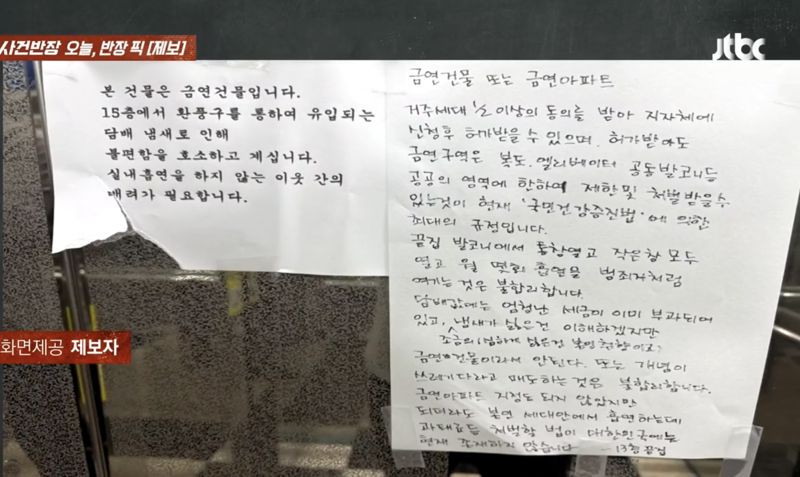 사건반장 오늘, 반장 픽 [제보]
jtbc
본 건물은 금연건물입니다.
15층에서 환풍구를 통하여 유입되는
담배 냄새로 인해
불편함을 호소하고 계십니다.
실내흡연을 하지 않는 이웃 간의
배려가 필요합니다.
금연건물 또는 금연아파트
거주세대 ½ 이상의 동의를 받아 지자체에
신청후 허가받을 수 있으며, 허가받아도
금연구역은 복도, 엘리베이터 공동발코니등
공공의 영역에 한하여 제한및 처벌 받을수
있는것이 현재 '국민건강증진법'에 의한
최대의 규정입니다.
끝집 발코니에서 통창열고 작은창 모두
열고 월 몇회 흡연을 범죄자처럼
여기는 것은 불합리합니다.
담배값에는 엄청난 세금이 이미 부과되어
있고, 냄새가 싫은건 이해하겠지만
조금의 냄새도 싫은건 본인 취향이고?
금연건물이라서 안된다. 또는 개념이
쓰레기다라고 매도하는 것은 불합리합니다.
금연아파트 지정도 되지 않았지만
되더라도 본연 세대안에서 흡연하는데
과태료등 처벌할 법이 대한민국에는
현재 존재하지 않습니다 - 13층 끝집
화면제공 제보자